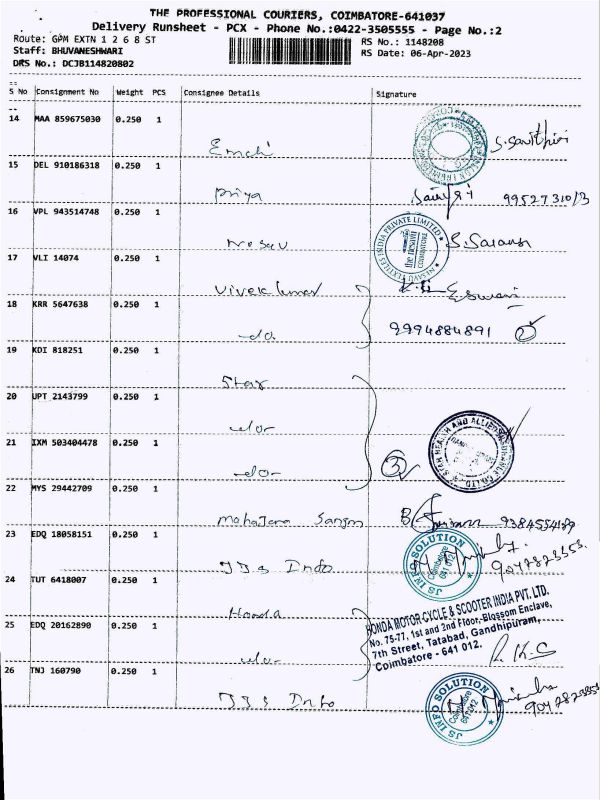 THE PROFESSIONAL COURIERS, COIMBATORE-641037
Delivery Runsheet - PCX - Phone No.:0422-3505555 - Page No.:2
Route: GPM EXTN 1 2 6 8 ST
RS No.: 1148208
Staff: BHUVANESHWARI
RS Date: 06-Apr-2023
DRS No.: DCJB114820802
S No Consignment No Weight PCS Consignee Details Signature
14 MAA 859675030 0.250 1
15 DEL 910186318 0.250 1
Priya 9952731013
16 VPL 943514748 0.250 1
NESAVU TEXTILES INDIA PRIVATE LIMITED
the nesavu
COIMBATORE
Nesavu
17 VLI 14074 0.250 1
Vivek kumar Eswari
18 KRR 5647638 0.250 1
-do- 9994884891 2
19 KDI 818251 0.250 1
Star
20 UPT 2143799 0.250 1
-do-
21 IXM 503404478 0.250 1
STAR HEALTH AND ALLIED INSURANCE CO LTD
-do- 3
22 MYS 29442709 0.250 1
Mohajara
23 EDQ 18058151 0.250 1
JS INFO SOLUTION
Coimbatore
641 012
JJs Info
24 TUT 6418007 0.250 1
Honda
25 EDQ 20162890 0.250 1
HONDA MOTOR CYCLE & SCOOTER INDIA PVT. LTD.
No. 75-77, 1st and 2nd Floor-Blossom Enclave,
7th Street, Tatabad, Gandhipuram,
Coimbatore - 641 012.
-do-
26 TNJ 160790 0.250 1
JS INFO SOLUTION
Coimbatore
641 012
JJs Info